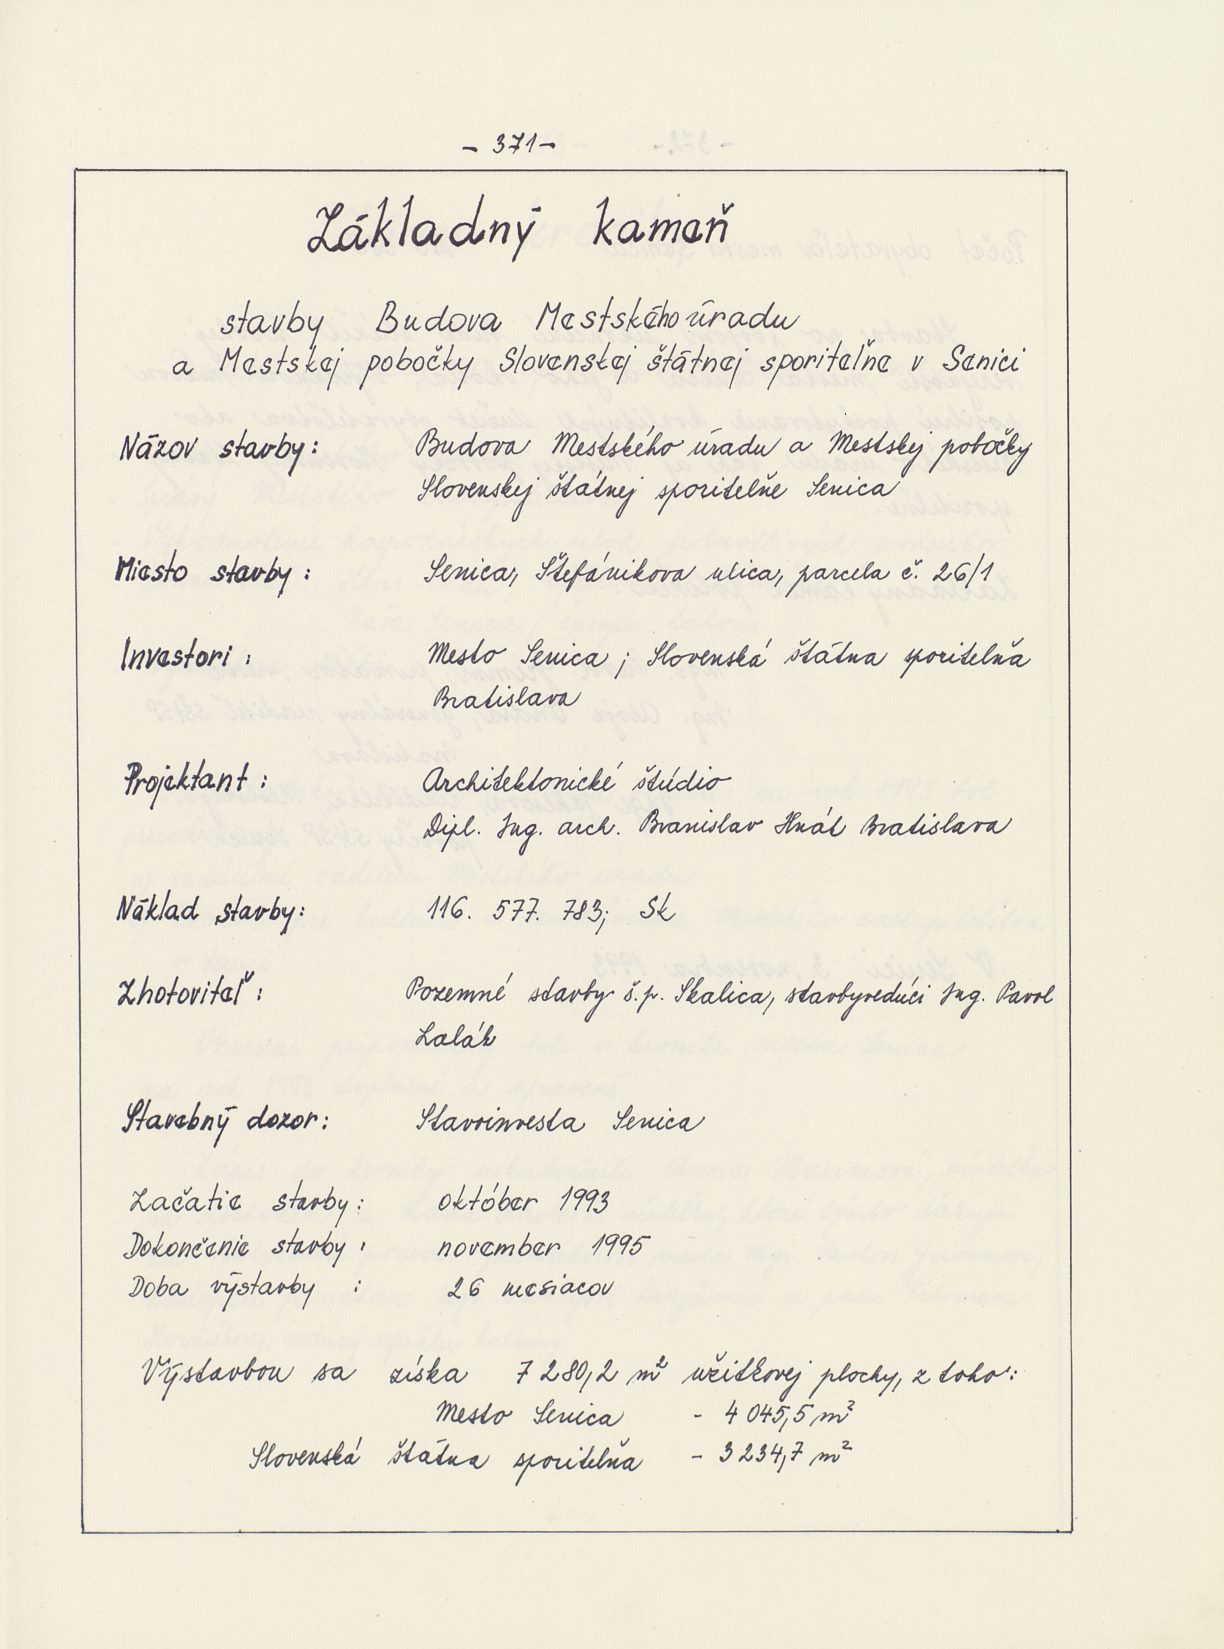 - 371 -
Základný kameň
stavby Budova Mestského úradu
a Mestskej pobočky Slovenskej štátnej sporiteľne v Senici
Názov stavby: Budova Mestského úradu a Mestskej pobočky
Slovenskej štátnej sporiteľne Senica
Miesto stavby: Senica, Štefánikova ulica, parcela č. 26/1
Investori: Mesto Senica; Slovenská štátna sporiteľňa
Bratislava
Projektant: Architektonické štúdio
Dipl. Ing. arch. Branislav Hnát Bratislava
Náklad stavby: 116. 577. 783; Sk
Zhotoviteľ: Pozemné stavby š.p. Skalica, stavbyvedúci Ing. Pavol
Lalák
Stavebný dozor: Stavoinvesta Senica
Začatie stavby: október 1993
Dokončenie stavby: november 1995
Doba výstavby: 26 mesiacov
Výstavbou sa získa 7 280,2 m² užitkovej plochy, z toho:
Mesto Senica - 4 045,5 m²
Slovenská štátna sporiteľňa - 3 234,7 m²